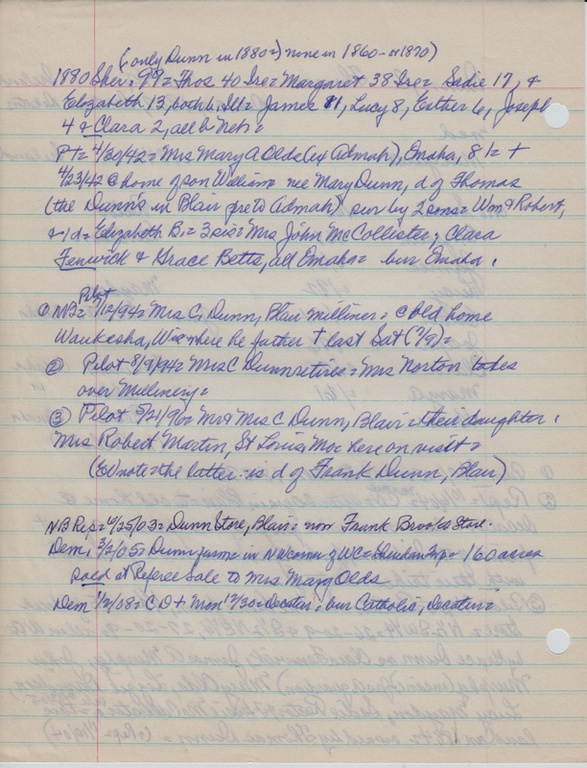 (only Dunn in 1880=) none in 1860 - or 1870)
1880 Sher: 99= Thos 40 Ire= Margaret 38 Ire= Sadie 17, &
Elizabeth 13, both b Ill= James 11, Lucy 8, Esther 6, Joseph
4 & Clara 2, all b Neb=
PT= 4/30/42= Mrs Mary A Olds (ex Admah), Omaha, 81= †
4/23/42 @ home of son William nee Mary Dunn, d of Thomas
(the Dunn's in Blair pre to Admah) sur by 2 sons= Wm & Robert,
& 1 d= Elizabeth B.= 3 sis= Mrs John McCollister; Clara
Fenwick & Grace Betts, all Omaha= bur Omaha.
① NB= Pilot 7/12/94= Mrs C. Dunn, Blair milliner= @ old home
Waukesha, Wisc where he father † last Sat (7/9)=
② Pilot 8/9/94= Mrs C Dunn retires= Mrs Norton takes
over Millinery=
③ Pilot 5/21/96= Mr & Mrs C Dunn, Blair= their daughter,
Mrs Robert Martin, St Louis, Mo= here on visit=
(Ed note= the latter is d of Frank Dunn, Blair)
NB Rep= 4/25/03= Dunn Store, Blair= now Frank Brooks Store.
Dem, 3/2/05= Dunn farm in NW corner of WC= Sheridan Twp= 160 acres
sold at Referee Sale to Mrs Mary Olds
Dem 1/2/08= C D † Mon 12/30= Decatur= bur Catholic, Decatur=